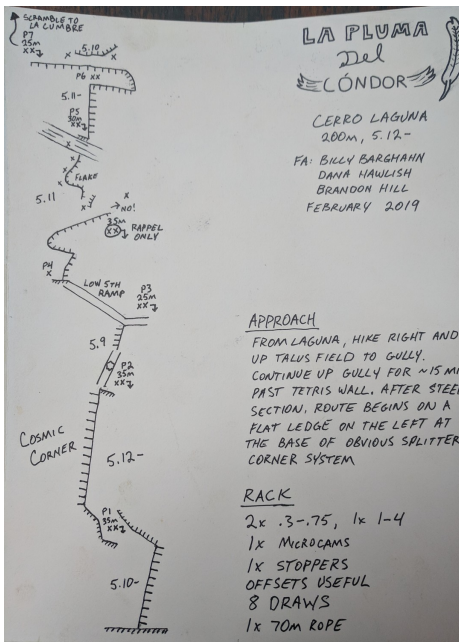 SCRAMBLE TO
LA CUMBRE
P7
25m
XX
5.10
P6 XX
5.11-
P5
30m
XX
FLAKE
5.11
NO!
35m
XX
RAPPEL
ONLY
P4
X
LOW 5TH
RAMP
P3
25m
XX
5.9
P2
35m
XX
COSMIC
CORNER
5.12-
P1
35m
XX
5.10-
LA PLUMA
Del
CÓNDOR
CERRO LAGUNA
200m, 5.12-
FA: BILLY BARGHAHN
DANA HAWLISH
BRANDON HILL
FEBRUARY 2019
APPROACH
FROM LAGUNA, HIKE RIGHT AND
UP TALUS FIELD TO GULLY.
CONTINUE UP GULLY FOR ~15 MI
PAST TETRIS WALL. AFTER STEE
SECTION, ROUTE BEGINS ON A
FLAT LEDGE ON THE LEFT AT
THE BASE OF OBVIOUS SPLITTER
CORNER SYSTEM
RACK
2x .3-.75, 1x 1-4
1x MICROCAMS
1x STOPPERS
OFFSETS USEFUL
8 DRAWS
1x 70m ROPE